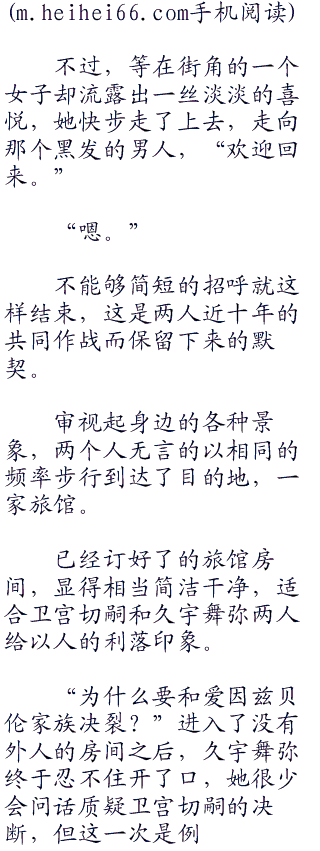 (m.heihei66.com手机阅读)
不过，等在街角的一个
女子却流露出一丝淡淡的喜
悦，她快步走了上去，走向
那个黑发的男人，“欢迎回
来。”
“嗯。”
不能够简短的招呼就这
样结束，这是两人近十年的
共同作战而保留下来的默
契。
审视起身边的各种景
象，两个人无言的以相同的
频率步行到达了目的地，一
家旅馆。
已经订好了的旅馆房
间，显得相当简洁干净，适
合卫宫切嗣和久宇舞弥两人
给以人的利落印象。
“为什么要和爱因兹贝
伦家族决裂？”进入了没有
外人的房间之后，久宇舞弥
终于忍不住开了口，她很少
会问话质疑卫宫切嗣的决
断，但这一次是例